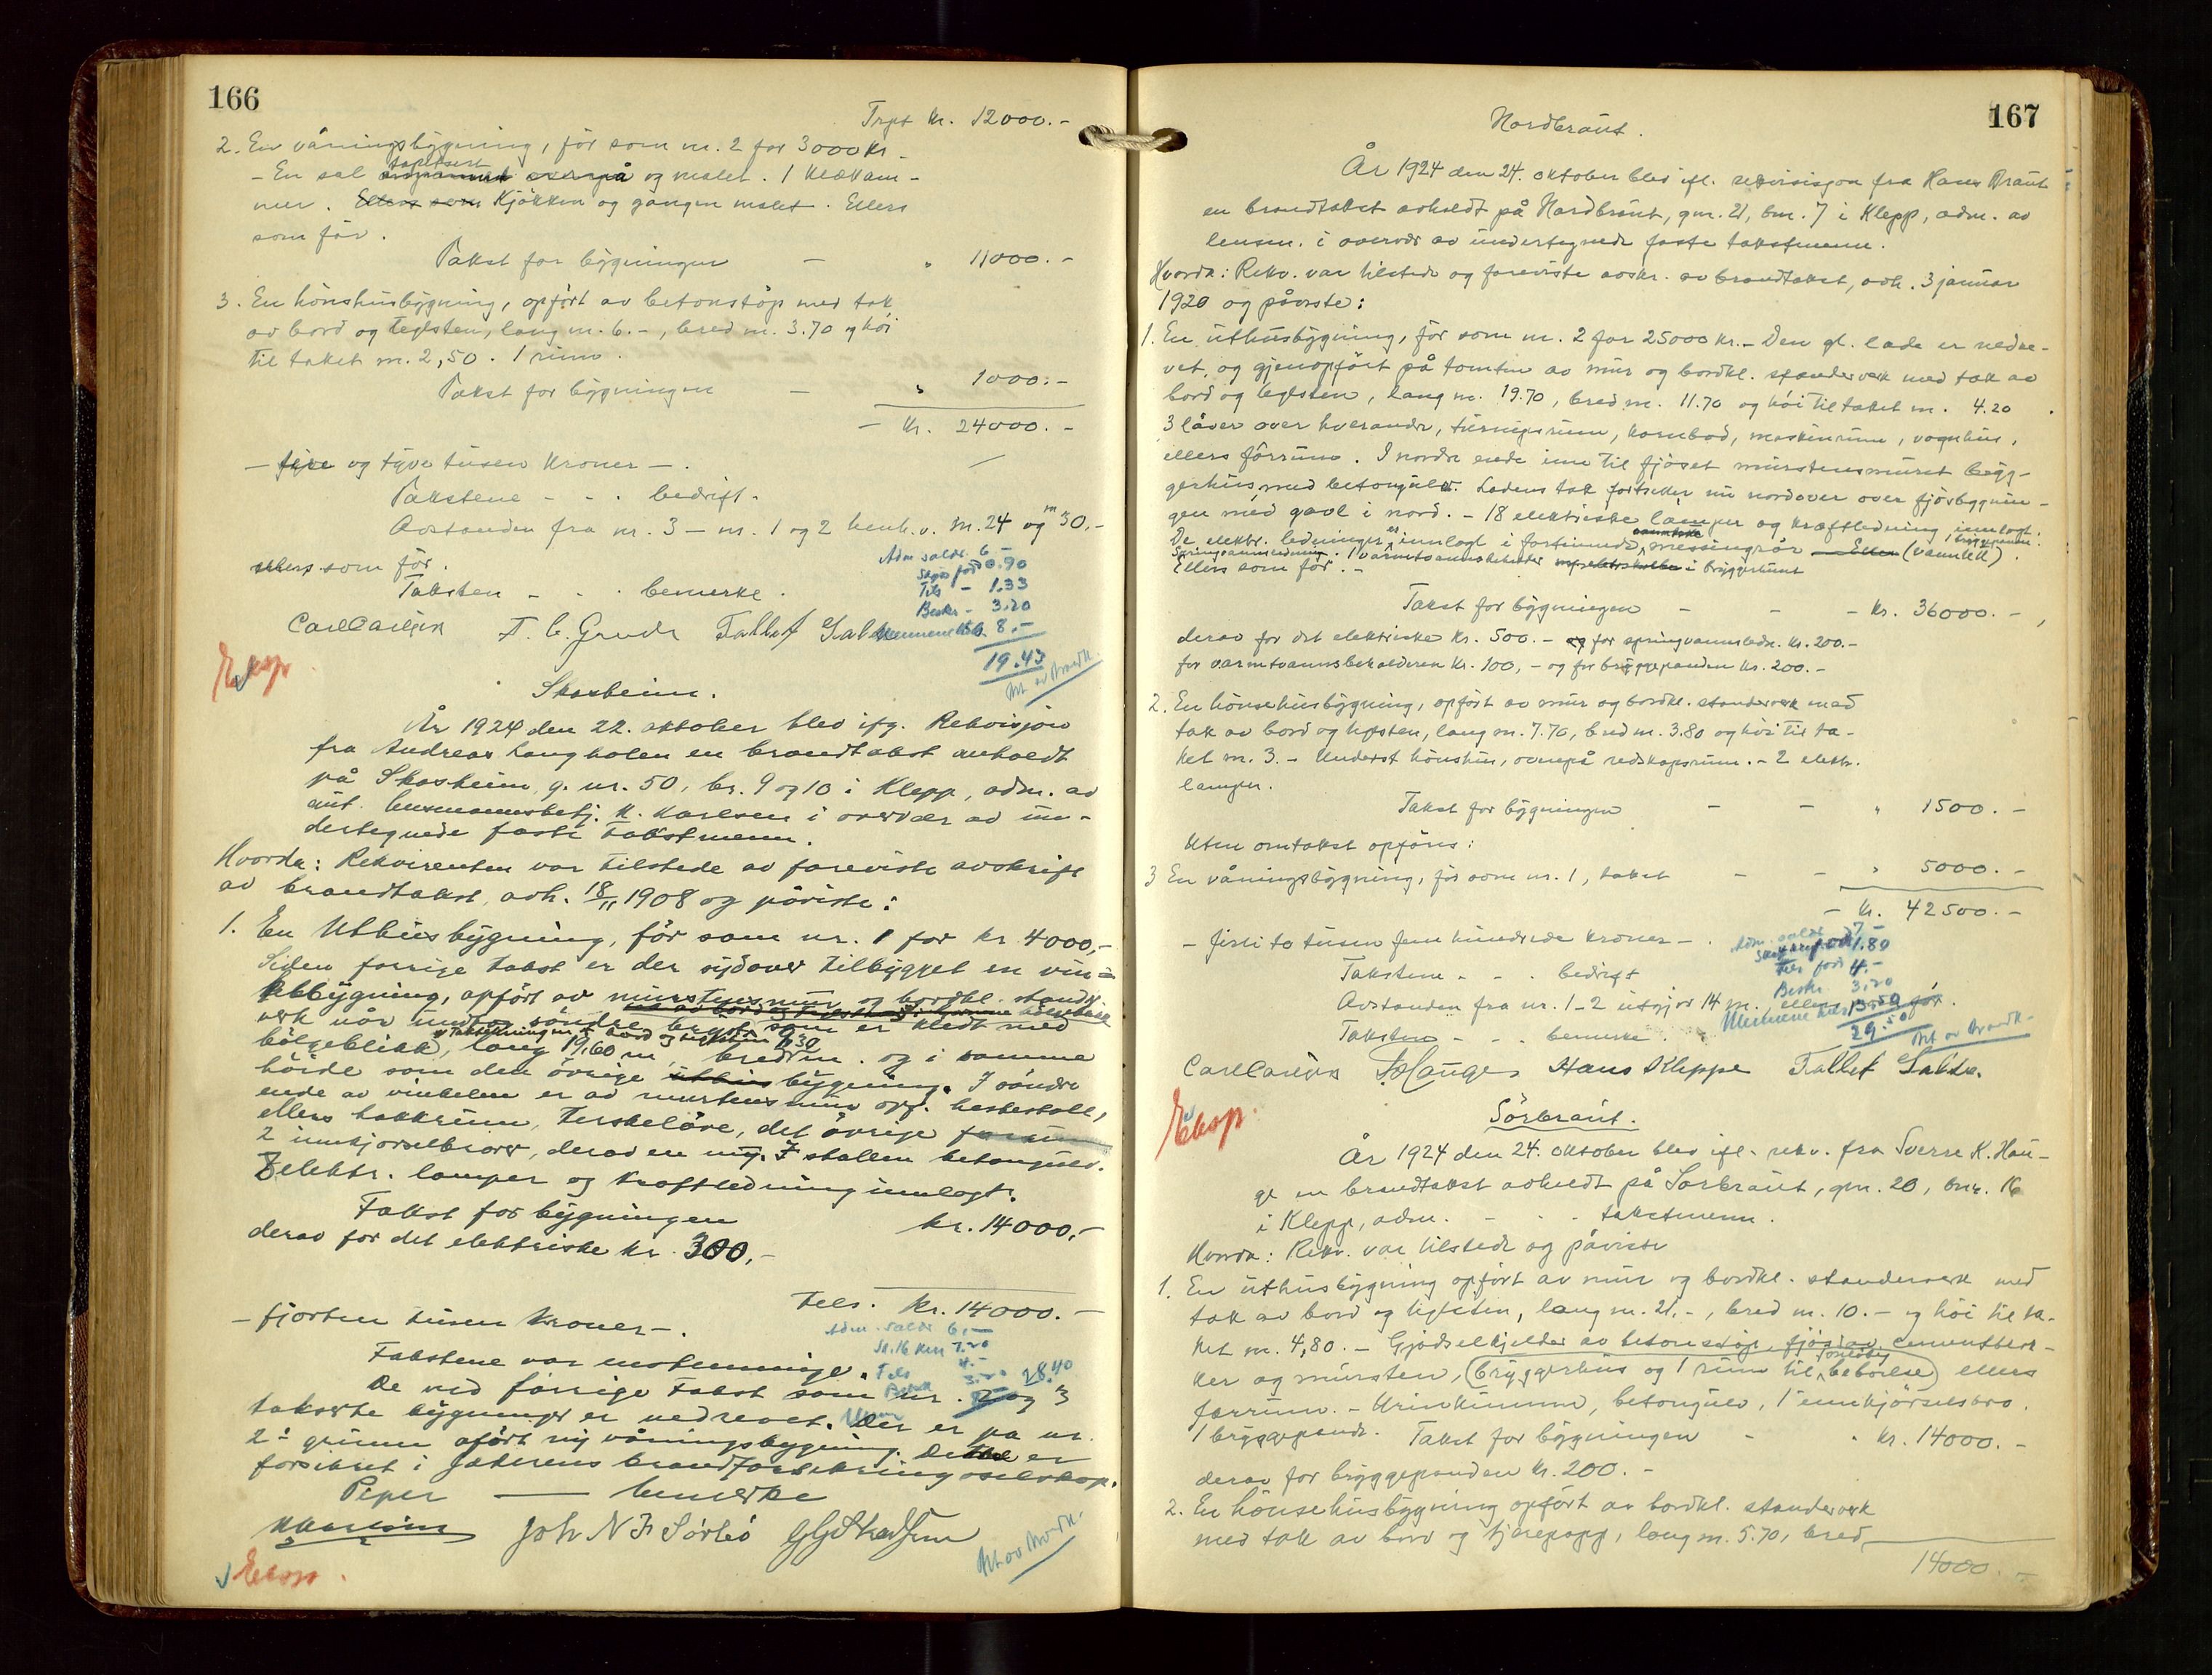 166
Trpt kr. 12000.-
2. En våningsbygning, för som nr. 2 for 3000 kr.
- En sal tapetsert og malet. 1 klækam-
mer. Ellers som Kjökken og gangen malet. Ellers
som för.
Takst for bygningen - " 11000.-
3. En hönshusbygning, opfört av betonstöp med tak
av bord og teglsten, lang m. 6.-, bred m. 3.70 og höi
til taket m. 2,50. 1 rum.
Takst for bygningen - " 1000.-
- Kr. 24000.-
- fire og tyve tusen kroner -.
Takstene - - . bedrift.
Avstanden fra nr. 3 - nr. 1 og 2 henh.v. m. 24 og m 30,-
ellers som för.
Taksten - - . bemerke.
Adm. saldr. 6.-
Skyss for 0.90
Tels - 1.33
Beskr - 3.20
Mennene 8.-
19.43
Art av Brandk.
Carl Carlsen T. C. Grude Tallef
Eksp.
Skasheim.
År 1924 den 22. oktober blev ifg. Rekvisjon
fra Andreas Langholen en brandtakst avholdt
på Skasheim, g. nr. 50, br. 9 og 10 i Klepp, adm. av
aut. lensmannsbetj. K. Karlsen i overvær av un-
dertegnede faste takstmenn.
Hvorda: Rekvirenten var tilstede av foreviste avskrift
av brandtakst, avh. 18/11 1908 og påviste:
1. En Uthusbygning, för som nr. 1 for kr 4000,-
Siden forrige takst er der sydover tilbygget en vin-
kelbygning, opfört av murstensmur og bordkl. stander-
verk når undtas söndre bryst som er kledt med
bölgeblikk, Taktekningen er bord og teglsten lang 19,60 m, bred m. 9,30 og i samme
höide som den övrige uthusbygning. I söndre
ende av vinkelen er av murstensmur opf. hestestall,
ellers hakkrum, treskelöve, det övrige forrum
2 innkjörselbroer, derav en ny. I stallen betongulv.
8 elektr. lamper og kraftledning innlagt.
Takst for bygningen kr. 14000,-
derav for det elektriske kr. 300,-
Tils. kr. 14000.-
- fjorten tusen kroner -.
Adm. saldr 6,-
Sk. 16 km 7.20
Tels 4.-
28.40
Takstene var enstemmige.
De ved forrige takst som nr. 2 og 3
takserte bygninger er nedrevet. Der er på nr.
2's grunn ofört ny våningsbygning. Dette er
forsikret i Jæderens brandforsikringsselskap.
Piper — bemerke
Joh N F Sörbö
Art av Brandk.
Eksp.
167
Nordbraut.
År 1924 den 24. oktober blev ifl. rekvisisjon fra Hans Braut
en brandtakst avholdt på Nordbraut, gnr. 21, bnr. 7 i Klepp, adm. av
lensm. i overvær av undertegnede faste takstmenn.
Hvorda: Rekv. var tilstede og foreviste avskr. av brandtakst, avh. 3 januar
1920 og påviste:
1. En uthusbygning, för som nr. 2 for 25000 kr. - Den gl. lade er nedre-
vet, og gjenopfört på tomten av mur og bordkl. standerverk med tak av
bord og teglsten, lang m. 19.70, bred m. 11.70 og höi til taket m. 4.20.
3 låver over hverandre, turnipsrum, kornbod, maskinrum, vognhus,
ellers fôrrum. I nordre ende inn til fjöset murstensmuret bryg-
gerhus med betongulv. Ladens tak fortsetter nu nordover over fjösbygnin-
gen med gavl i nord. - 18 elektriske lamper og kraftledning innlagt.
De elektr. ledninger er innlagt i fortinnede messingrör (vanntett) 1 bryggepanne.
Springvannsledning. 1 varmtvannsbeholder i bryggerhuset
Ellers som för.-
Takst for bygningen - - - kr. 36000.-,
derav for det elektriske kr. 500.- og for springvannsledn. kr. 200.-
for varmtvannsbeholderen kr. 100,- og for bryggepanden kr. 200.-
2. En hönsehusbygning, opfört av mur og bordkl. standerverk med
tak av bord og teglsten, lang m. 7.70, bred m. 3.80 og höi til ta-
ket m. 3.- Underst hönshus, ovenpå redskapsrum. - 2 elektr.
lamper.
Takst for bygningen - - " 1500.-
Uten omtakst opföres:
3 En våningsbygning, för som nr. 1, takst - - " 5000.-
- kr. 42500.-
- firti to tusen fem hundrede kroner -.
Takstene - - . bedrift
Avstanden fra nr. 1-2 utgjör 14 m. ellers som för.
Taksten - - . bemerke.
Adm. saldr 7.-
Skyss for 1.80
Tels for 4.-
Beskr 3.20
Mennene tils 13.50
29.50
Art av Brandk.
Carl Carlsen Hauge Hans Kleppe Tallef
Eksp.
Sörbraut.
År 1924 den 24. oktober blev ifl. rekv. fra Sverre K. Hau-
ge en brandtakst avholdt på Sörbraut, gnr. 20, bnr. 16
i Klepp, adm. - - - takstmenn.
Hvorda: Rekv. var tilstede og påviste
1. En uthusbygning opfört av mur og bordkl. standerverk med
tak av bord og teglsten, lang m. 21.-, bred m. 10.- og höi til ta-
ket m. 4,80. - Gjödselkjelder av betonstöp, fjös av cementblok-
ker og mursten, (bryggerhus og 1 rum til foreløbig beboelse) ellers
forrum. - Urinkumme, betongulv, 1 innkjörselsbro.
1 bryggepande. Takst for bygningen - " kr. 14000.-
derav for bryggepanden kr. 200.-
2. En hönsehusbygning opfört av bordkl. standerverk
med tak av bord og tjærepapp, lang m. 5.70, bred
14000.-